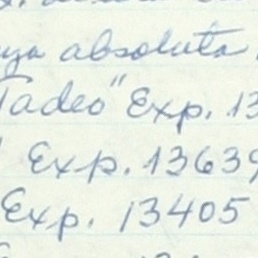 absoluta
Tadeo" Exp. 13
" Exp. 13639
Exp. 13405